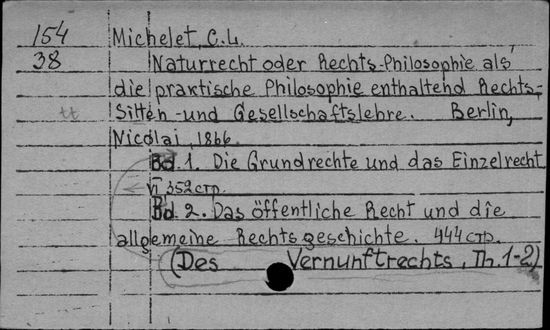 154 Michelet, C. L.
38 Naturrecht oder Rechts-Philosophie als
die praktische Philosophie enthaltend Rechts-,
Sitten- und Gesellschaftslehre. Berlin,
Nicolai, 1866.
Bd. 1. Die Grundrechte und das Einzelrecht
VI 352 стр.
Bd. 2. Das öffentliche Recht und die
allgemeine Rechtsgeschichte. 444 стр.
(Des Vernunftrechts, Th. 1-2)